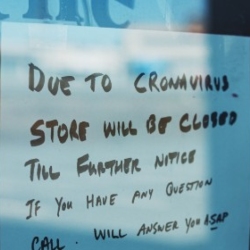 DUE TO CRONAVIRUS
STORE WILL BE CLOSED
TILL FURTHER NOTICE
IF YOU HAVE ANY QUESTION
CALL. WILL ANSWER YOU ASAP